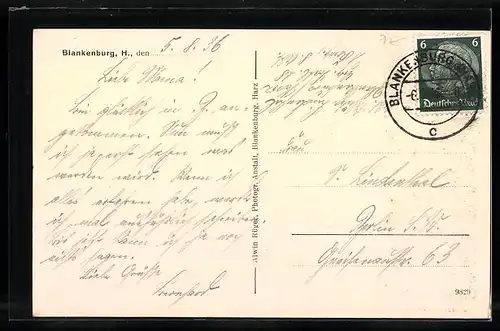 Blankenburg, H., den 5. 8. 36
Liebe Mama!
Bin glücklich in B. an-
gekommen. Nun muß
ich ja erst sehen was
werden wird. Wenn ich
alles erfahren habe, werde
ich mal ausführlich schreiben.
Bis jetzt kann ich ja noch
nichts sagen.
Viele Grüße
Bernhard
Alwin Rügge, Photogr. Anstalt, Blankenburg, Harz
BLANKENBURG
c
6 6
Deutsches Reich
Frau
Lindenthal
Berlin S.W.
Gneisenaustr. 63
9829